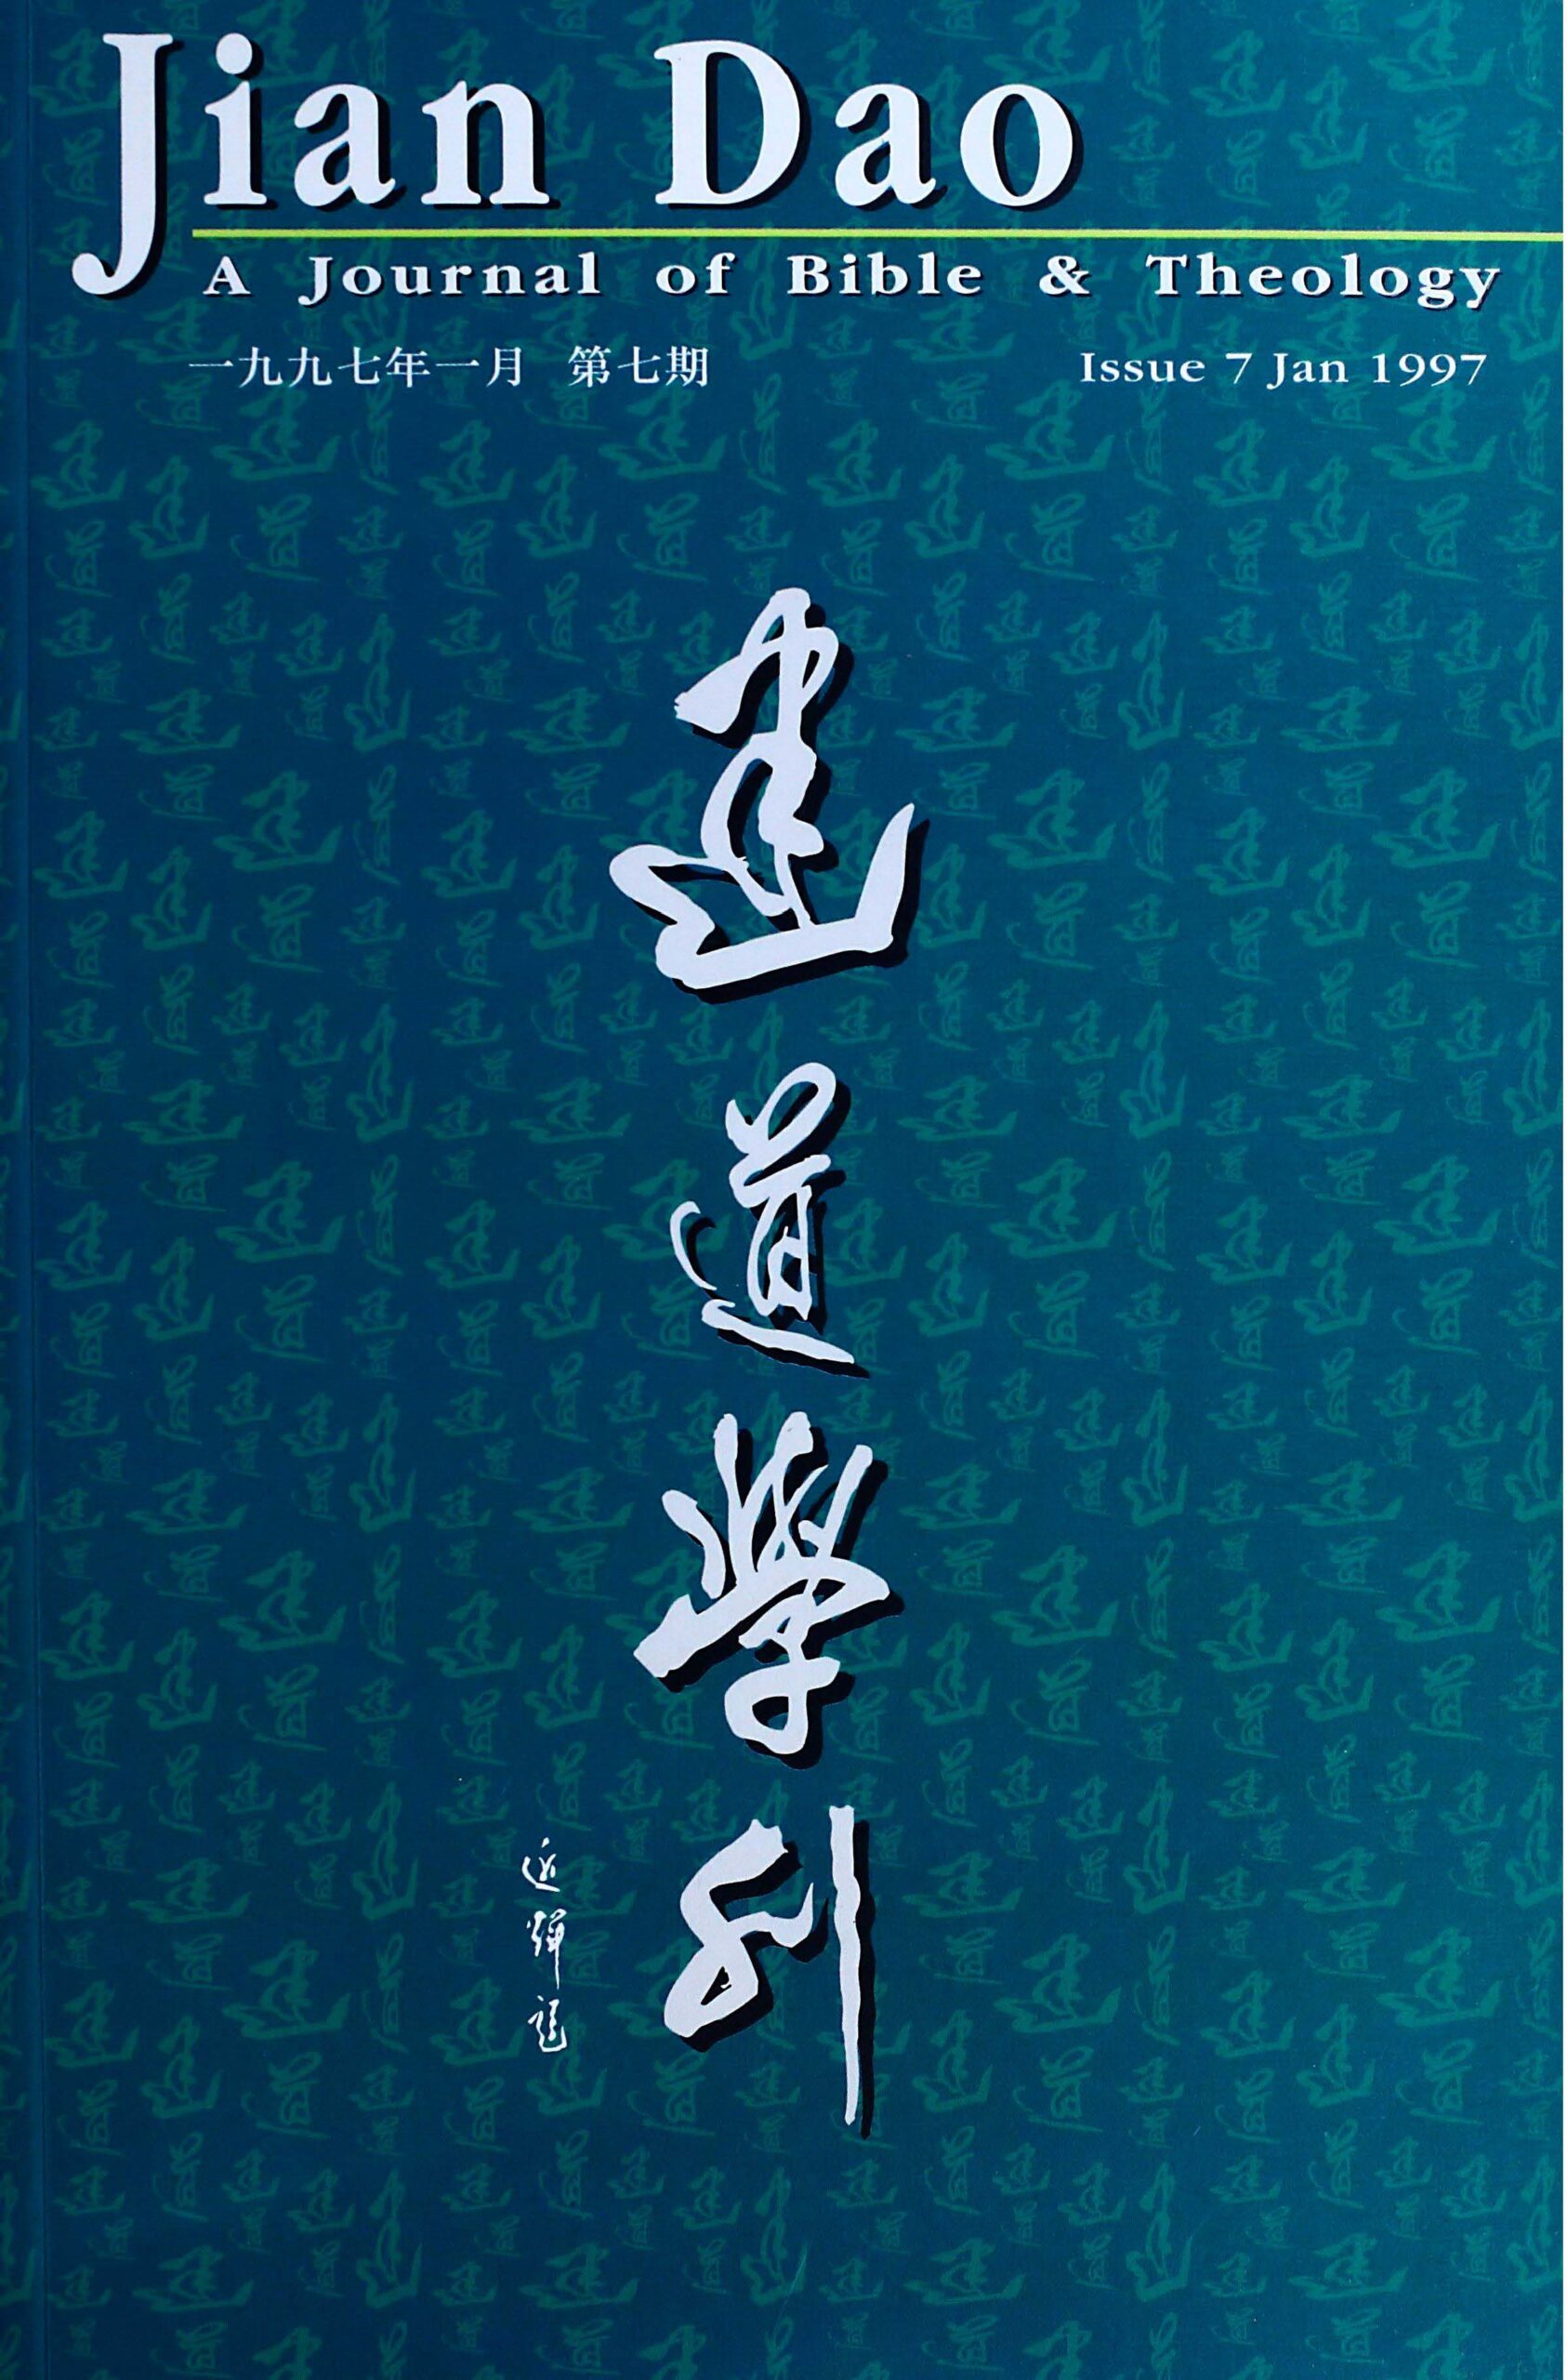 Jian Dao
A Journal of Bible & Theology
一九九七年一月 第七期 Issue 7 Jan 1997
建道學刊